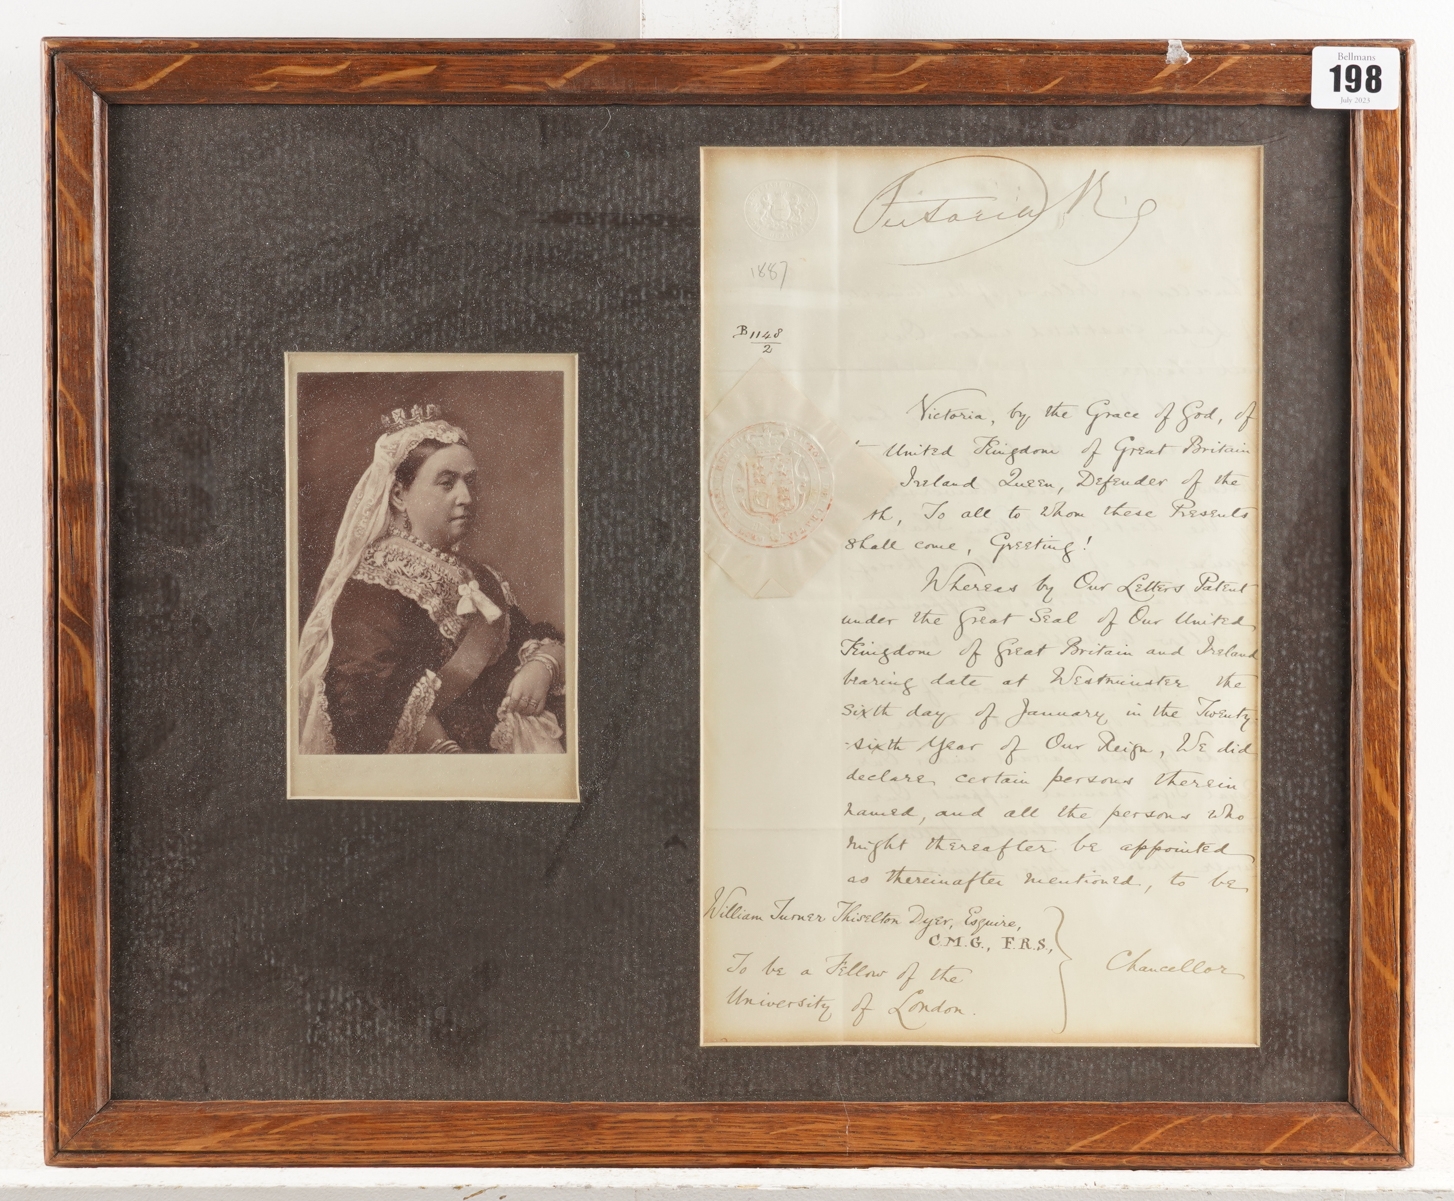 Bellmans
198
July 2023
Victoria R
1887
B 1148
2
Victoria, by the Grace of God, of
United Kingdom of Great Britain
Ireland Queen, Defender of the
th, To all to Whom these Presents
Shall come, Greeting!
Whereas by Our Letters Patent
under the Great Seal of Our United
Kingdom of Great Britain and Ireland
bearing date at Westminster the
Sixth day of January, in the Twenty
-sixth Year of Our Reign, We did
declare certain persons therein
named, and all the persons who
might thereafter be appointed
as thereinafter mentioned, to be
William Turner Thiselton Dyer, Esquire,
C.M.G., F.R.S.,
To be a Fellow of the
University of London.
Chancellor